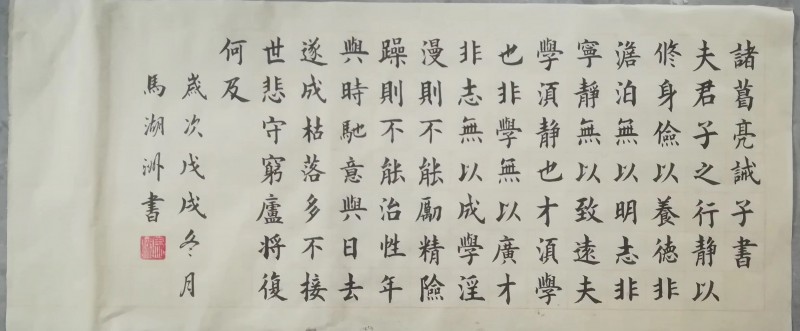 諸葛亮誡子書
夫君子之行静以
修身儉以養德非
澹泊無以明志非
寧静無以致遠夫
學須静也才須學
也非學無以廣才
非志無以成學淫
漫則不能勵精險
躁則不能治性年
與時馳意與日去
遂成枯落多不接
世悲守窮廬將復
何及
歲次戊戌冬月
馬湖洲書